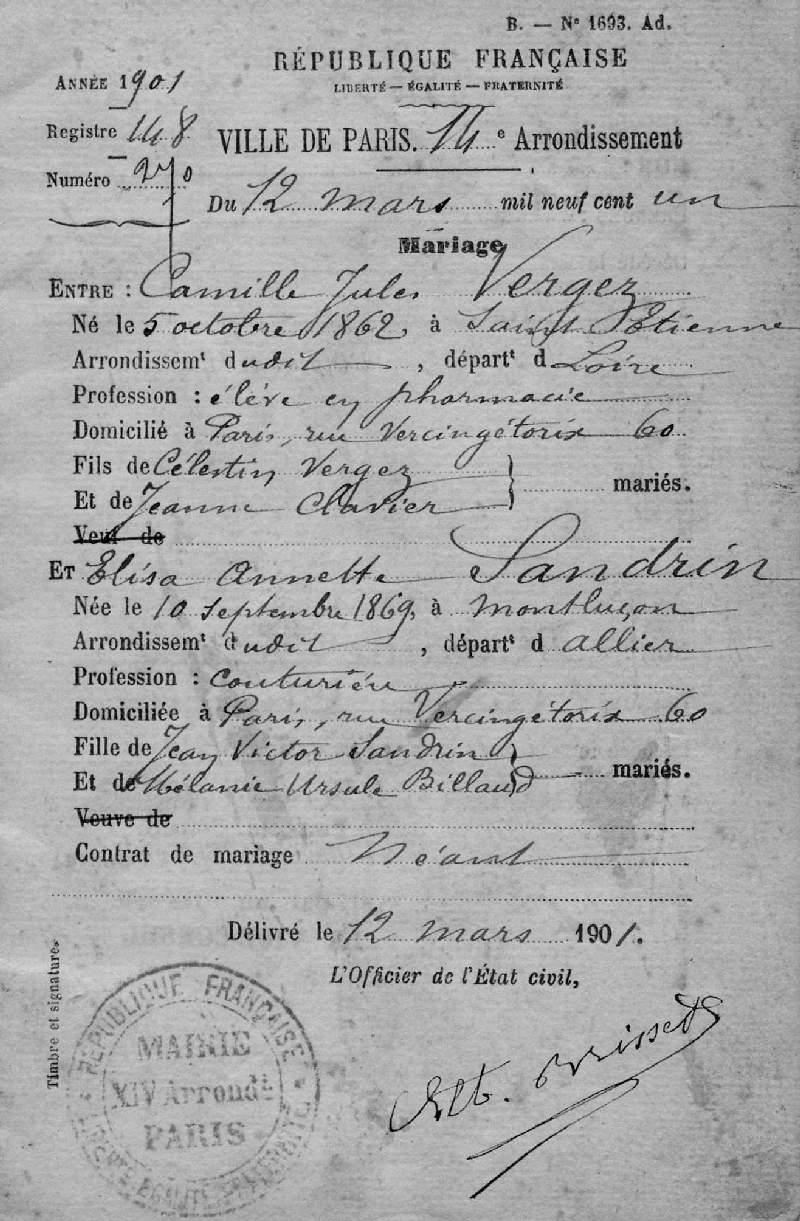 B. — N° 1693. Ad.
RÉPUBLIQUE FRANÇAISE
LIBERTÉ — ÉGALITÉ — FRATERNITÉ
ANNÉE 1901
Registre 148
Numéro 270
VILLE DE PARIS. 14e Arrondissement
Du 12 mars mil neuf cent un
Mariage
ENTRE : Camille Jules Vergez
Né le 5 octobre 1862, à Saint Etienne
Arrondissemt dudit, départt d Loire
Profession : élève en pharmacie
Domicilié à Paris, rue Vercingétorix 60
Fils de Célestin Vergez
Et de Jeanne Clavier } mariés.
Veuf de
ET Elisa Annette Sandrin
Née le 10 septembre 1869, à Montluçon
Arrondissemt dudit, départt d Allier
Profession : couturière
Domiciliée à Paris, rue Vercingétorix 60
Fille de Jean Victor Sandrin
Et de Mélanie Ursule Billaud } mariés.
Veuve de
Contrat de mariage Néant
Délivré le 12 mars 1901.
L'Officier de l'État civil,
Timbre et signature.
RÉPUBLIQUE FRANÇAISE
MAIRIE
XIV Arrondt
PARIS
LIBERTÉ ÉGALITÉ FRATERNITÉ